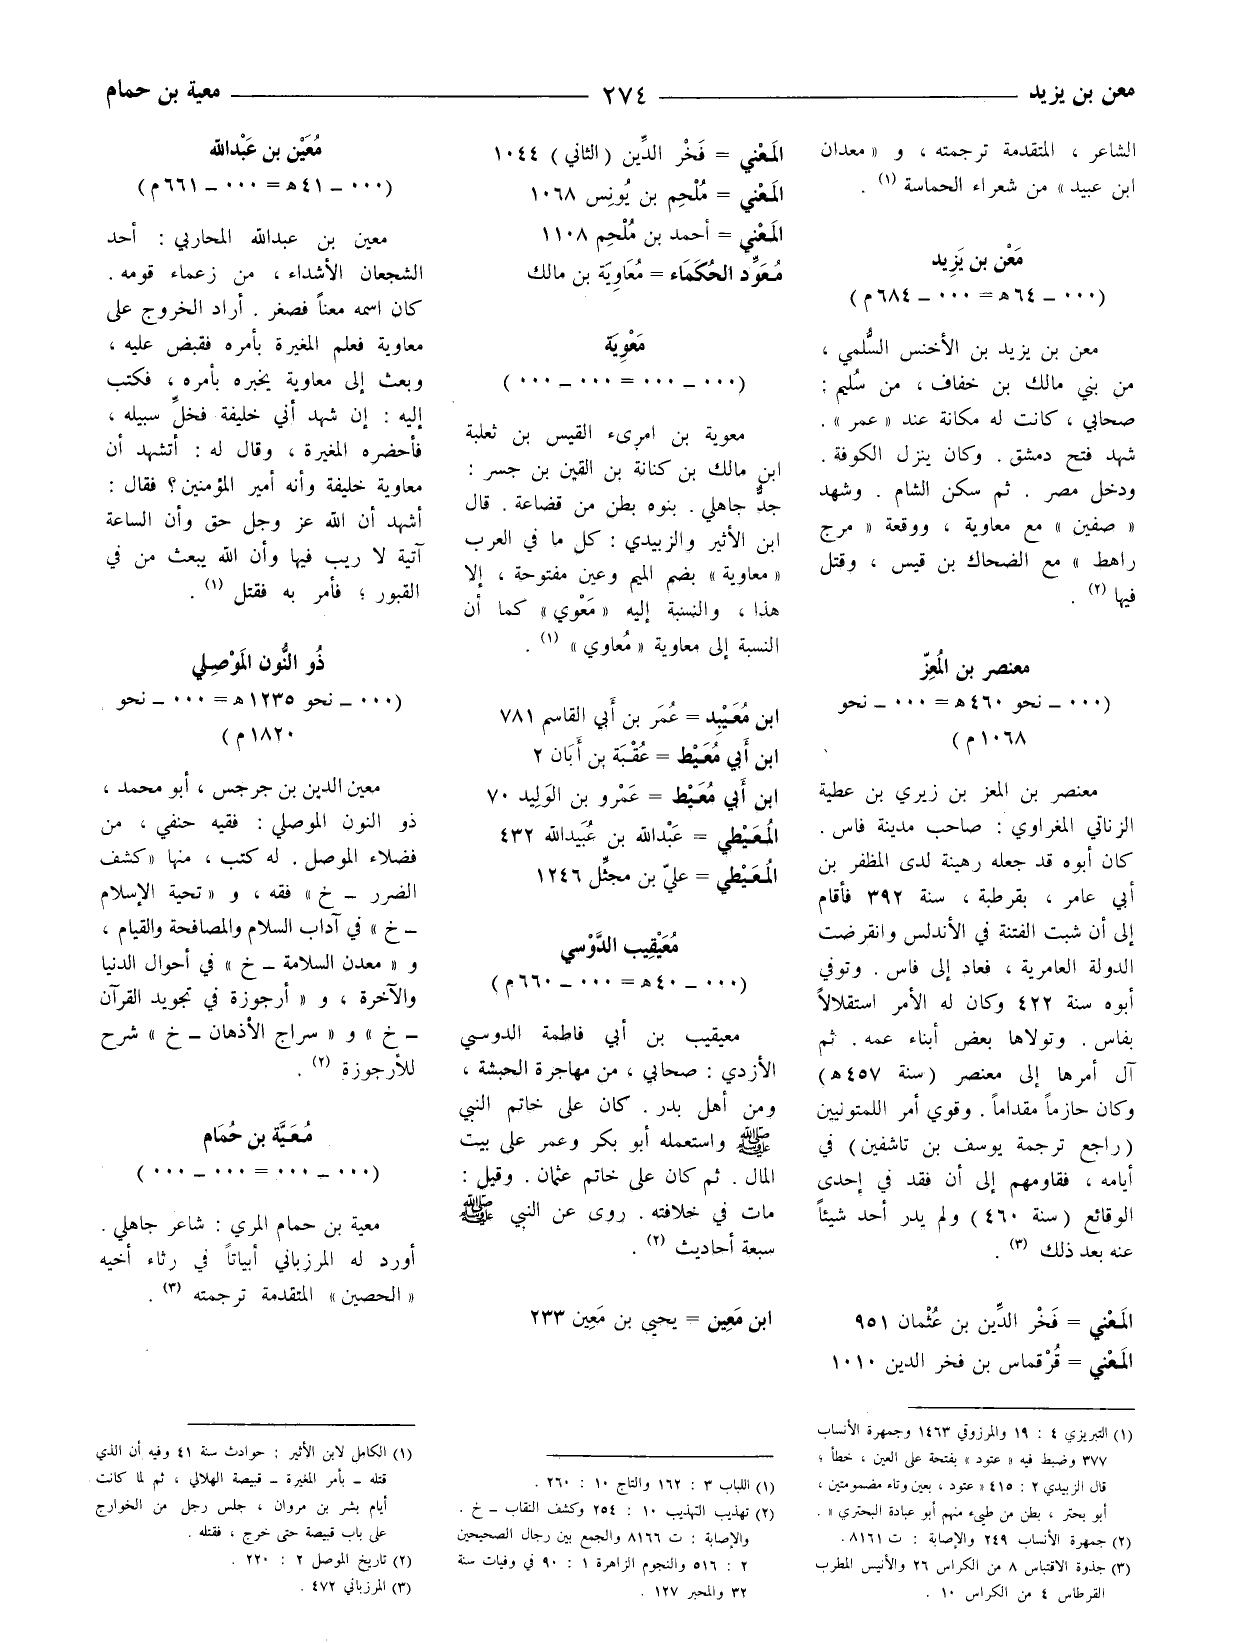 معن بن يزيد ـــ ٢٧٤ ـــ معية بن حمام
الشاعر ، المتقدمة ترجمته ، و « معدان
ابن عبيد » من شعراء الحماسة (١) .
مَعْن بن يَزِيد
(٠٠٠ ــ ٦٤ هـ = ٠٠٠ ــ ٦٨٤ م)
معن بن يزيد بن الأخنس السُّلمي ،
من بني مالك بن خفاف ، من سُليم :
صحابي ، كانت له مكانة عند « عمر » .
شهد فتح دمشق . وكان ينزل الكوفة .
ودخل مصر . ثم سكن الشام . وشهد
« صفين » مع معاوية ، ووقعة « مرج
راهط » مع الضحاك بن قيس ، وقتل
فيها (٢) .
معنصر بن المُعِزّ
(٠٠٠ ــ نحو ٤٦٠ هـ = ٠٠٠ ــ نحو
١٠٦٨ م)
معنصر بن المعز بن زيري بن عطية
الزناتي المغراوي : صاحب مدينة فاس .
كان أبوه قد جعله رهينة لدى المظفر بن
أبي عامر ، بقرطبة ، سنة ٣٩٢ فأقام
إلى أن شبت الفتنة في الأندلس وانقرضت
الدولة العامرية ، فعاد إلى فاس . وتوفي
أبوه سنة ٤٢٢ وكان له الأمر استقلالاً
بفاس . وتولاها بعض أبناء عمه . ثم
آل أمرها إلى معنصر (سنة ٤٥٧ هـ)
وكان حازماً مقداماً . وقوي أمر اللمتونيين
(راجع ترجمة يوسف بن تاشفين) في
أيامه ، فقاومهم إلى أن فقد في إحدى
الوقائع (سنة ٤٦٠) ولم يدر أحد شيئاً
عنه بعد ذلك (٣) .
المَعْني = فَخْر الدِّين بن عُثْمان ٩٥١
المَعْني = قُرْقماس بن فخر الدين ١٠١٠
(١) التبريزي ٤ : ١٩ والمرزوقي ١٤٦٣ وجمهرة الأنساب
٣٧٧ وضبط فيه « عتود » بفتحة على العين ، خطأ ؛
قال الزبيدي ٢ : ٤١٥ « عتود ، بعين وتاء مضمومتين ،
أبو بحتر ، بطن من طيىء منهم أبو عبادة البحتري » .
(٢) جمهرة الأنساب ٢٤٩ والإصابة : ت ٨١٦١ .
(٣) جذوة الاقتباس ٨ من الكراس ٢٦ والأنيس المطرب
القرطاس ٤ من الكراس ١٠ .
المَعْني = فَخْر الدِّين (الثاني) ١٠٤٤
المَعْني = مُلْحِم بن يُونس ١٠٦٨
المَعْني = أحمد بن مُلْحِم ١١٠٨
مُعَوِّد الحُكَمَاء = مُعَاوِيَة بن مالك
مَعْوِيَة
(٠٠٠ ــ ٠٠٠ = ٠٠٠ ــ ٠٠٠)
معوية بن امرىء القيس بن ثعلبة
ابن مالك بن كنانة بن القين بن جسر :
جدٌّ جاهلي . بنوه بطن من قضاعة . قال
ابن الأثير والزبيدي : كل ما في العرب
« معاوية » بضم الميم وعين مفتوحة ، إلا
هذا ، والنسبة إليه « مَعْوي » كما أن
النسبة إلى معاوية « مُعاوي » (١) .
ابن مُعَيْبِد = عُمَر بن أَبي القاسم ٧٨١
ابن أَبي مُعَيْط = عُقْبَة بن أَبَان ٢
ابن أَبي مُعَيْط = عَمْرو بن الوَلِيد ٧٠
المُعَيْطي = عَبْدالله بن عُبَيدالله ٤٣٢
المُعَيْطي = عليّ بن مجثِّل ١٢٤٦
مُعَيْقِيب الدَّوْسي
(٠٠٠ ــ ٤٠ هـ = ٠٠٠ ــ ٦٦٠ م)
معيقيب بن أبي فاطمة الدوسي
الأزدي : صحابي ، من مهاجرة الحبشة ،
ومن أهل بدر . كان على خاتم النبي
ﷺ واستعمله أبو بكر وعمر على بيت
المال . ثم كان على خاتم عثمان . وقيل :
مات في خلافته . روى عن النبي ﷺ
سبعة أحاديث (٢) .
ابن مَعِين = يحيى بن مَعِين ٢٣٣
(١) اللباب ٣ : ١٦٢ والتاج ١٠ : ٢٦٠ .
(٢) تهذيب التهذيب ١٠ : ٢٥٤ وكشف النقاب ــ خ .
والإصابة : ت ٨١٦٦ والجمع بين رجال الصحيحين
٢ : ٥١٦ والنجوم الزاهرة ١ : ٩٠ في وفيات سنة
٣٢ والمحبر ١٢٧ .
مُعَيْن بن عَبْدالله
(٠٠٠ ــ ٤١ هـ = ٠٠٠ ــ ٦٦١ م)
معين بن عبدالله المحاربي : أحد
الشجعان الأشداء ، من زعماء قومه .
كان اسمه معناً فصغر . أراد الخروج على
معاوية فعلم المغيرة بأمره فقبض عليه ،
وبعث إلى معاوية يخبره بأمره ، فكتب
إليه : إن شهد أني خليفة فخلِّ سبيله ،
فأحضره المغيرة ، وقال له : أتشهد أن
معاوية خليفة وأنه أمير المؤمنين ؟ فقال :
أشهد أن الله عز وجل حق وأن الساعة
آتية لا ريب فيها وأن الله يبعث من في
القبور ؛ فأمر به فقتل (١) .
ذُو النُّون المَوْصِلي
(٠٠٠ ــ نحو ١٢٣٥ هـ = ٠٠٠ ــ نحو
١٨٢٠ م)
معين الدين بن جرجس ، أبو محمد ،
ذو النون الموصلي : فقيه حنفي ، من
فضلاء الموصل . له كتب ، منها « كشف
الضرر ــ خ » فقه ، و « تحية الإسلام
ــ خ » في آداب السلام والمصافحة والقيام ،
و « معدن السلامة ــ خ » في أحوال الدنيا
والآخرة ، و « أرجوزة في تجويد القرآن
ــ خ » و « سراج الأذهان ــ خ » شرح
للأرجوزة (٢) .
مُعَيَّة بن حُمَام
(٠٠٠ ــ ٠٠٠ = ٠٠٠ ــ ٠٠٠)
معية بن حمام المري : شاعر جاهلي .
أورد له المرزباني أبياتاً في رثاء أخيه
« الحصين » المتقدمة ترجمته (٣) .
(١) الكامل لابن الأثير : حوادث سنة ٤١ وفيه أن الذي
قتله ــ بأمر المغيرة ــ قبيصة الهلالي ، ثم لما كانت
أيام بشر بن مروان ، جلس رجل من الخوارج
على باب قبيصة حتى خرج ، فقتله .
(٢) تاريخ الموصل ٢ : ٢٢٠ .
(٣) المرزباني ٤٧٢ .